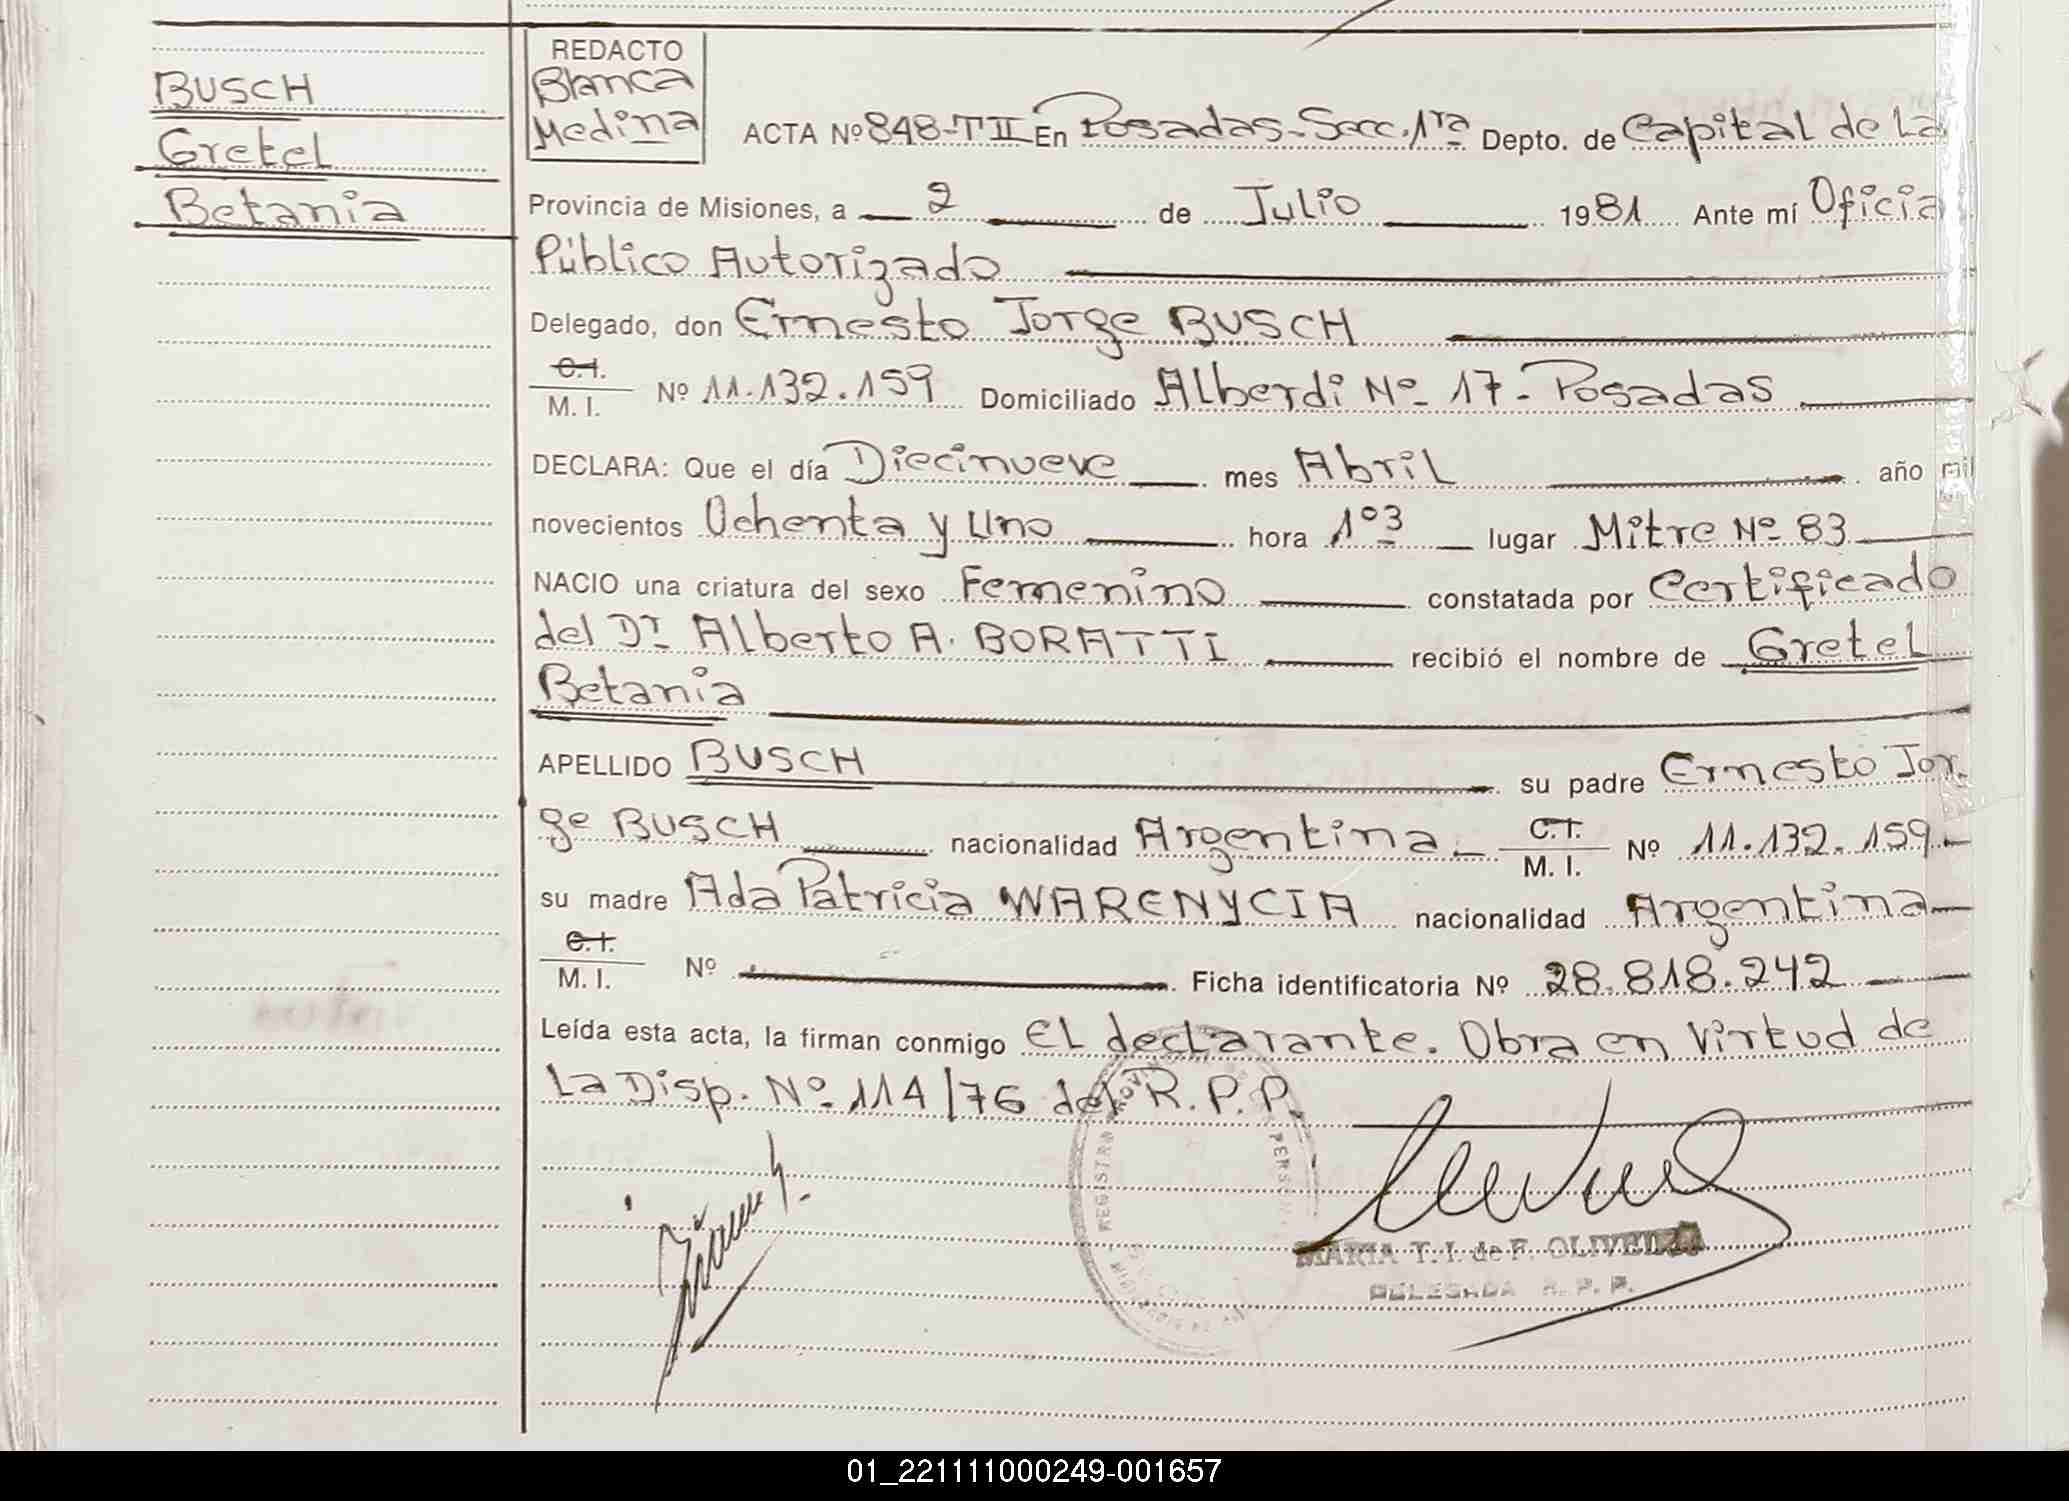 BUSCH
Gretel
Betania
REDACTO
Blanca
Medina
ACTA Nº 848-T II En Posadas-Secc. 1ra Depto. de Capital de La
Provincia de Misiones, a 2 de Julio 1981 Ante mí Oficia
Público Autorizado
Delegado, don Ernesto Jorge BUSCH
C.I.
M. I. Nº 11.132.159 Domiciliado Alberdi Nº 17-Posadas
DECLARA: Que el día Diecinueve mes Abril año mil
novecientos Ochenta y Uno hora 1º3 lugar Mitre Nº 83
NACIO una criatura del sexo Femenino constatada por Certificado
del Dr. Alberto A. BORATTI recibió el nombre de Gretel
Betania
APELLIDO BUSCH su padre Ernesto Jor
ge BUSCH nacionalidad Argentina C.I.
M. I. Nº 11.132.159
su madre Ada Patricia WARENYCIA nacionalidad Argentina
C.I.
M. I. Nº Ficha identificatoria Nº 28.818.242
Leída esta acta, la firman conmigo el declarante. Obra en virtud de
La Disp. Nº 114/76 del R.P.P.
MARIA T. I. de F. OLIVEIRA
DELEGADA R. P. P.
01_221111000249-001657